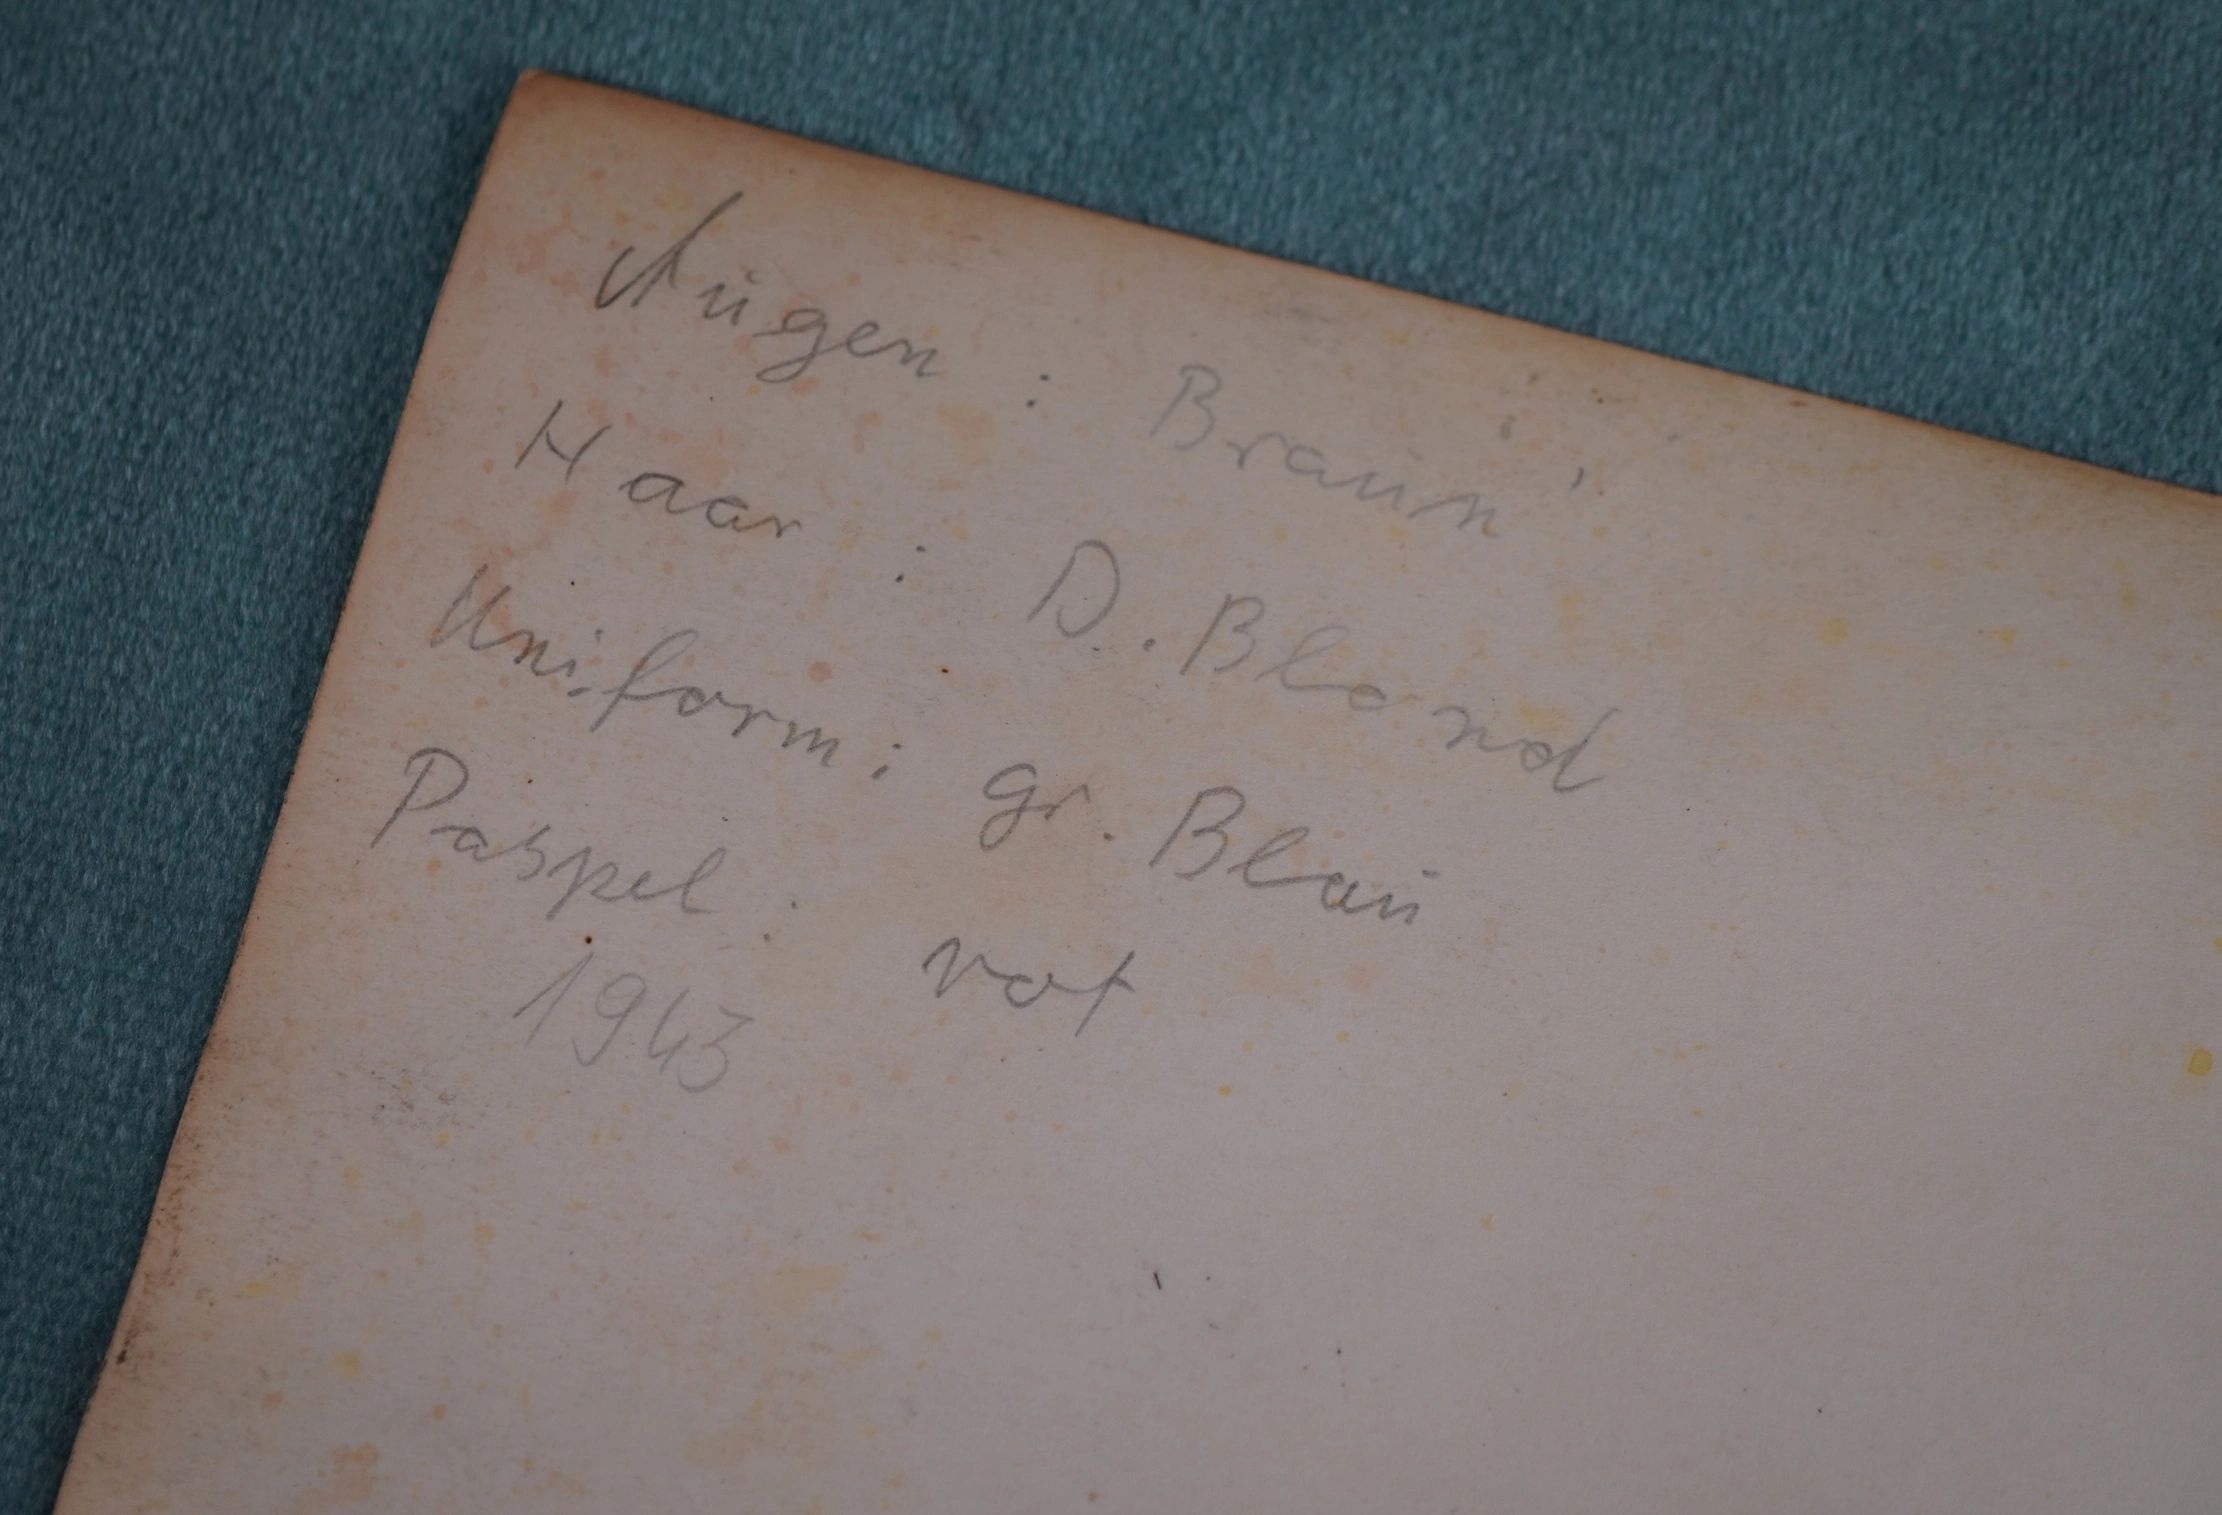 Augen : Braun
Haar : D. Blond
Uniform : gr. Blau
Paspel : rot
1943